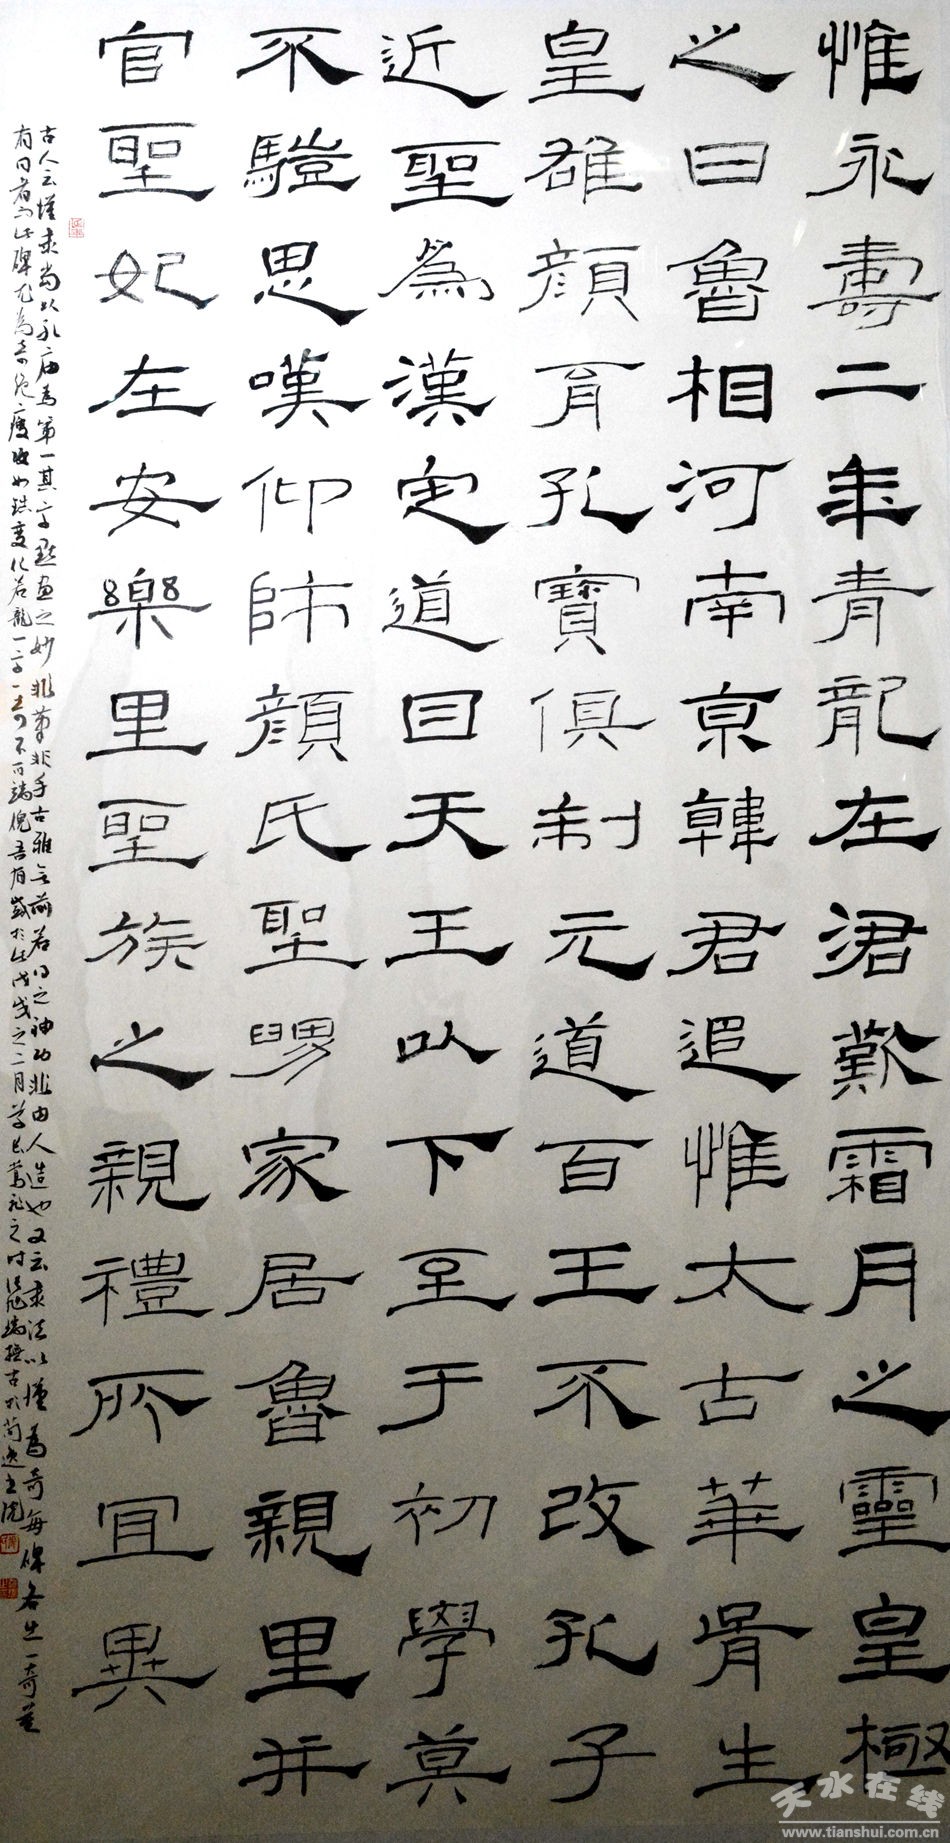 惟永壽二年青龍在涒歎霜月之靈皇極
之日魯相河南京韓君追惟太古華胥生
皇雄顏育孔寶俱制元道百王不改孔子
近聖為漢定道自天王以下至于初學莫
不驥思嘆仰師顏氏聖舅家居魯親里并
官聖妃在安樂里聖族之親禮所宜異
古人云漢隸當以孔廟為第一其字點畫之妙非筆非手古雅無前若得之神功非由人造也又云隸法以漢為奇每碑各出一奇莫
有同者而此碑尤為奇絕瘦勁如鐵變化若龍一字一奇不可端倪吾有感於是戊戌之二月
天水在线
www.tianshui.com.cn